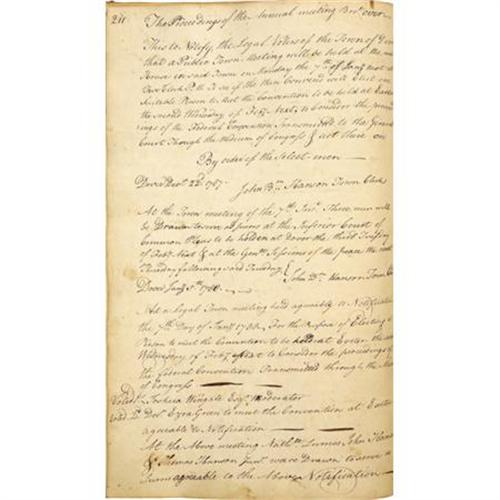 211 The Proceedings of the Annual meeting Bro.t over
This to Notify the Legal Voters of the Town of
that a Public Town Meeting will be held at the
House in said Town on Monday the 7th of Janry next at
Two Clock P.M. to see if the then Convened will Elect one
Suitable Person to Meet the Convention to be held at
the second Wednesday of Feb.y Next, to Consider the
ings of the Federal Convention Transmitted to the
Court Though the Medium of Congress & act there on
By order of the Select-men
Dover Decr 22d 1787. John Bm Hanson Town Clerk
At the Town meeting of the 7th Inst. Three men will
be Drawn to serve as jurors at the Inferior Court of
Common Pleas to be holden at dover the third
of Feb.y Next & at the Genl Sessions of the peace the
Thursday following said Tuesday { John Bm Hanson Town
Dover Janry 5th 1788.
At a Legal Town meeting held agreable to Notification
the 7th Day of Janry 1788. For the Purpose of Electing
Person to meet the Convention to be held at Exeter the
Wednesday of Feb.y Next to Consider the proceedings of
the federal Convention Transmitted through the
of Congress
Voted Joshua Wingate Esqr Moderator
Doc.r Ezra Green to meet the Convention at
agreable to Notification
At the Above meeting Nathl John
& Thomas Hanson Junr ware Drawn to serve
agreable to the Above Notification